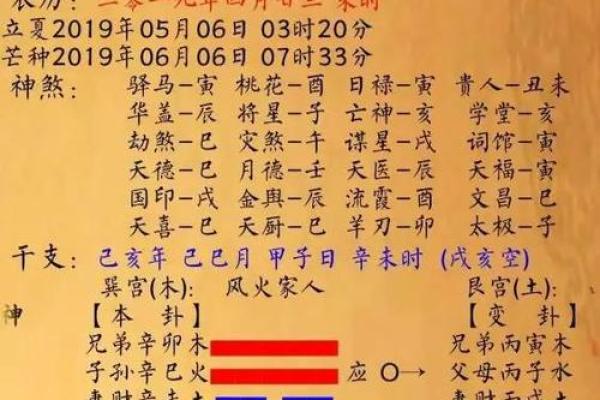 农历：二零一九年四月廿三 未时
立夏2019年05月06日 03时20分
芒种2019年06月06日 07时33分
神煞： 驿马-寅 桃花-酉 日禄-寅 貴人-丑未
华盖-辰 将星-子 亡神-亥 学堂-亥
劫煞-巳 灾煞-午 谋星-戌 词馆-寅
天德-巳 月德-壬 天医-辰 天福-寅
国印-戌 金舆-辰 流霞-酉 文昌-巳
天喜-巳 天厨-巳 羊刃-卯 太极-子
干支： 己亥年 己巳月 甲子日 辛未时 (戌亥空)
巽宫(木)： 风火家人 艮宫(土)：
神 【本 卦】 【变 卦】
兄弟辛卯木 兄弟丙寅木
子孙辛巳火 应 O→ 父母丙子水
妻财辛未土 妻财丙戌土